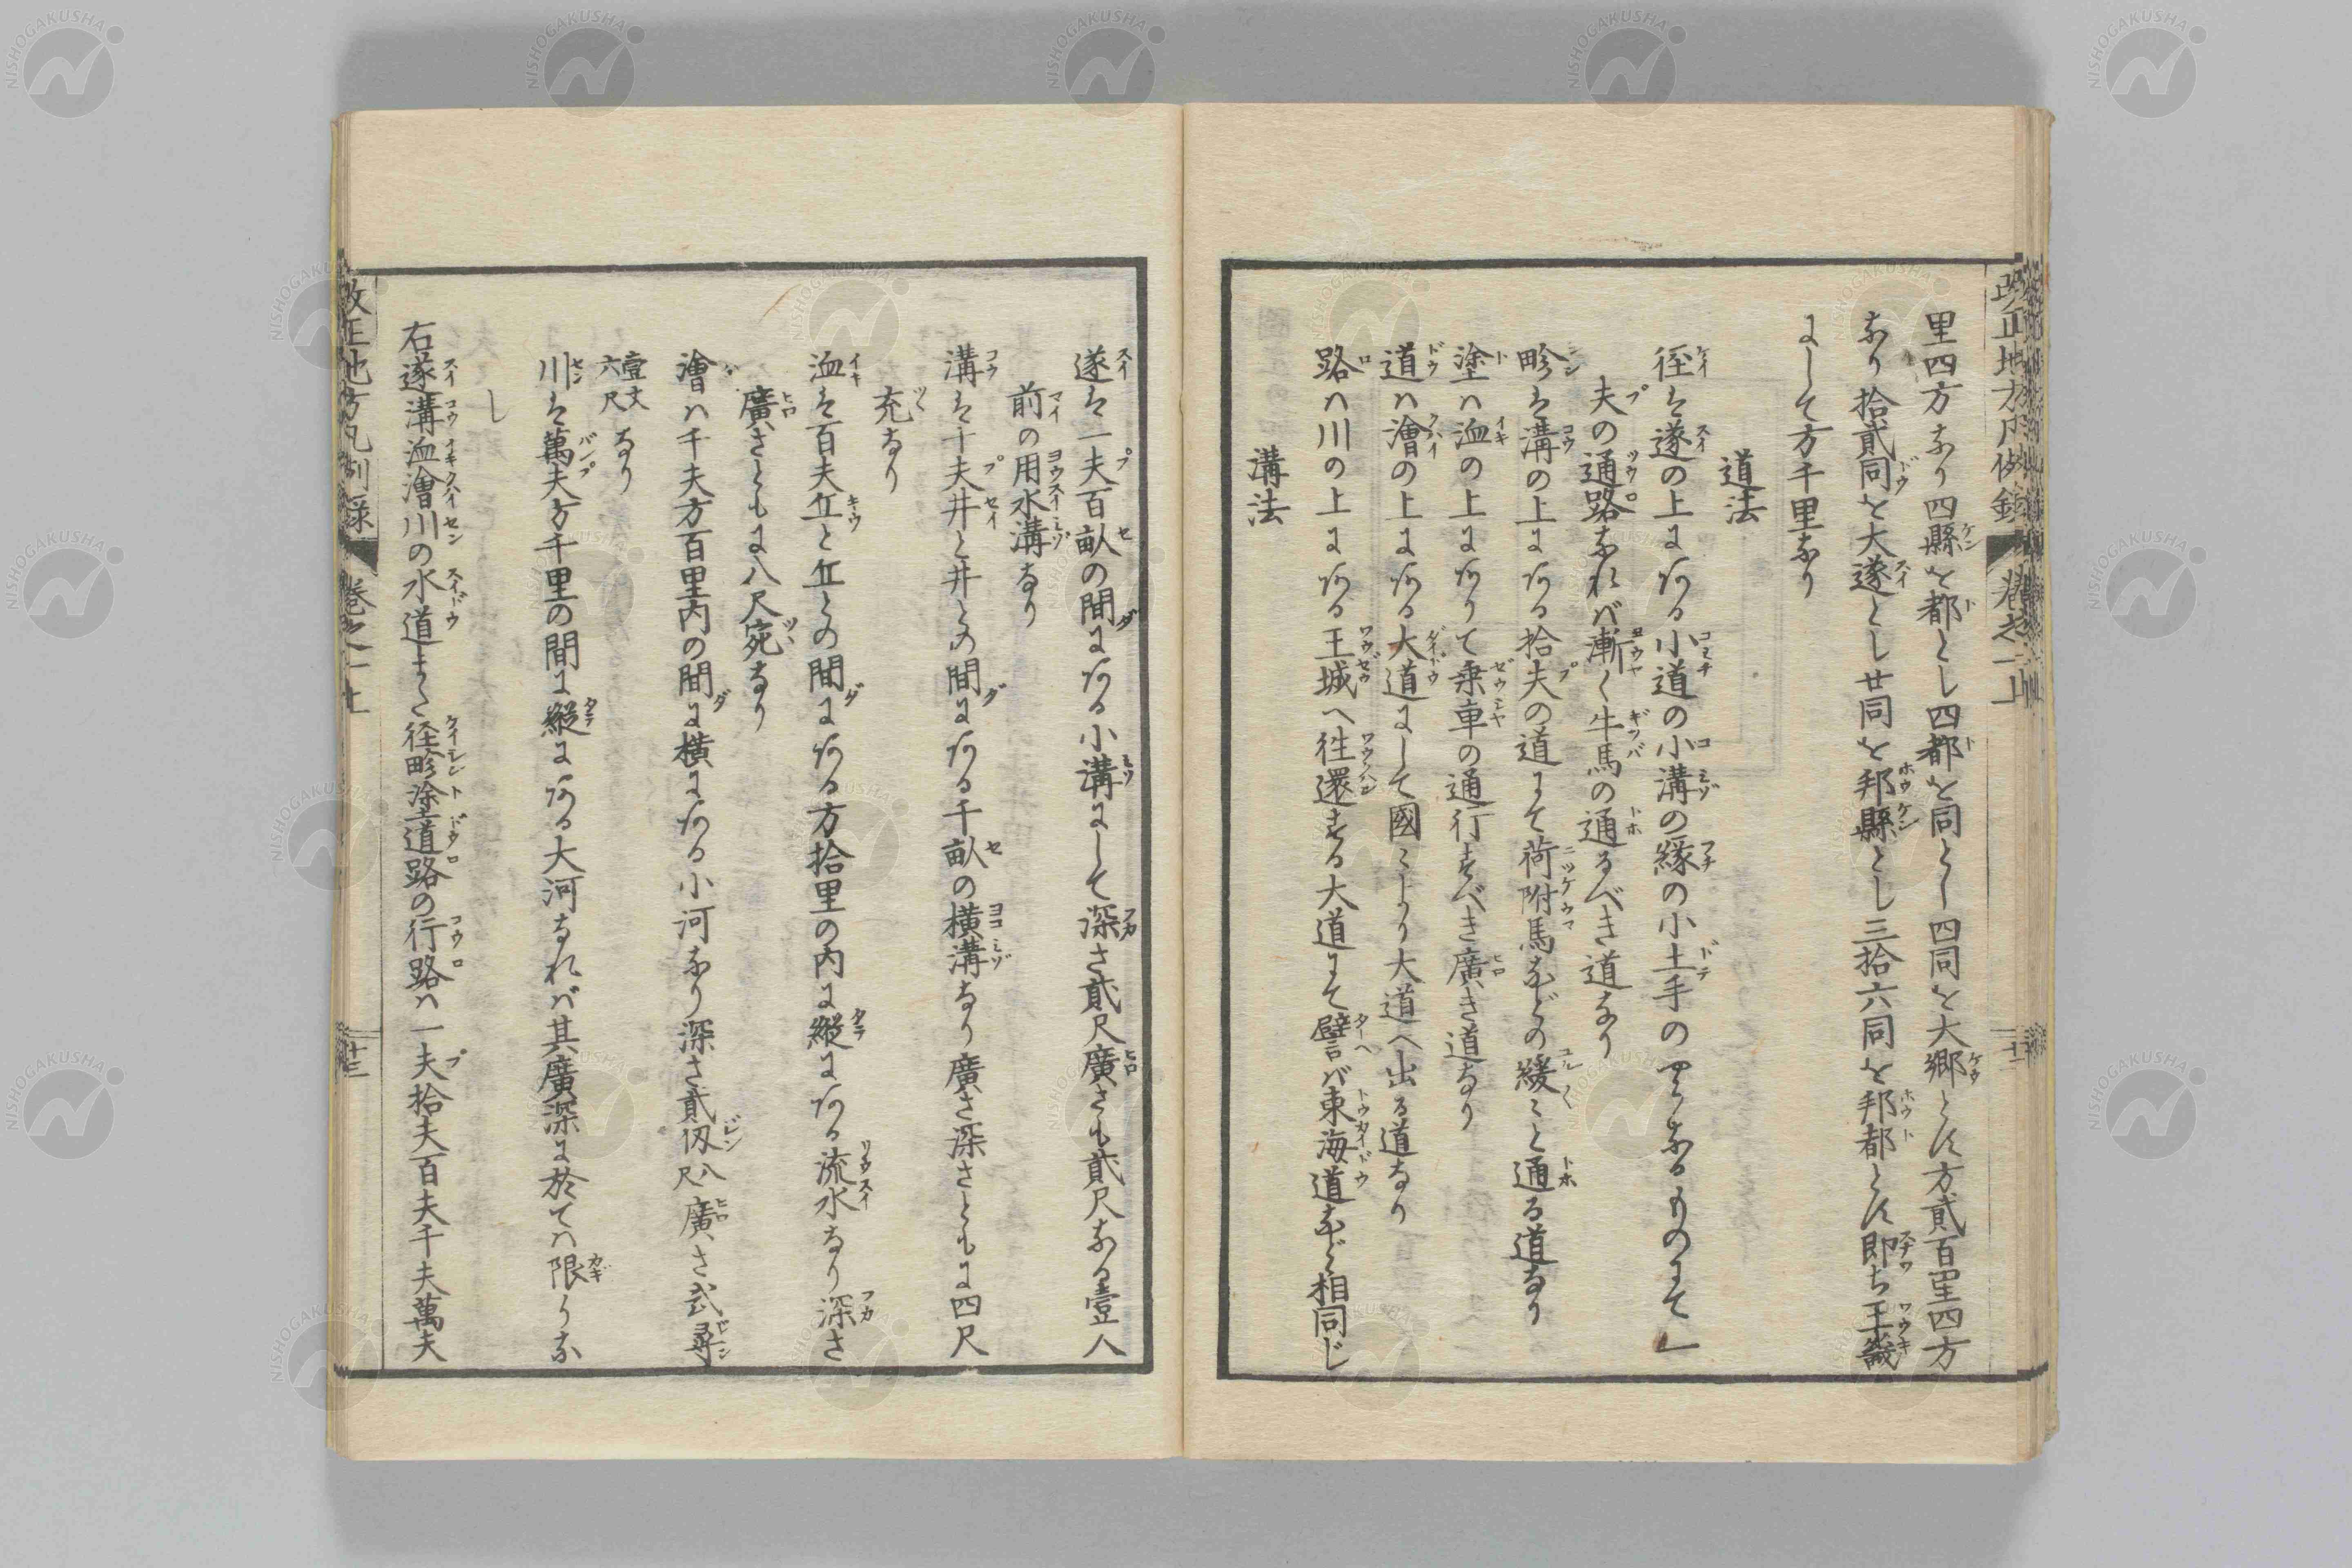 里四方なり四縣を都とし四都を同とし四同を大郷とす方貳百里四方
なり拾貳同を大遂とし廿同を邦縣とし三拾六同を邦都とす即ち王畿
にして方千里なり
道法
徑は遂の上にある小道の小溝の縁の小土手のやうなるものにて一
夫の通路なれバ漸く牛馬の通るべき道なり
畛は溝の上にある拾夫の道にて荷附馬などの緩〻と通る道なり
塗ハ洫の上にありて乗車の通行すべき廣き道なり
道ハ澮の上にある大道にして國〻より大道へ出る道なり
路ハ川の上にある王城へ徃還する大道にて譬バ東海道など相同じ
溝法
遂は一夫百畝の間にある小溝にして深さ貳尺廣さも貳尺なる壹人
前の用水溝なり
溝は十夫井と井との間にある千畝の横溝なり廣さ深さともに四尺
充なり
洫は百夫丘と丘との間にある方拾里の内に縱にある流水なり深さ
廣さともに八尺宛なり
澮ハ千夫方百里内の間に横にある小河なり深さ貳仭八尺廣さ貳尋
壹丈六尺なり
川は萬夫方千里の間に縱にある大河なれバ其廣深に於てハ限りな
し
右遂溝洫澮川の水道また径畛塗道路の行路ハ一夫拾夫百夫千夫萬夫
改正地方凡例録 巻之一上 十二
改正地方凡例録 巻之一上 十三
NISHOGAKUSHA